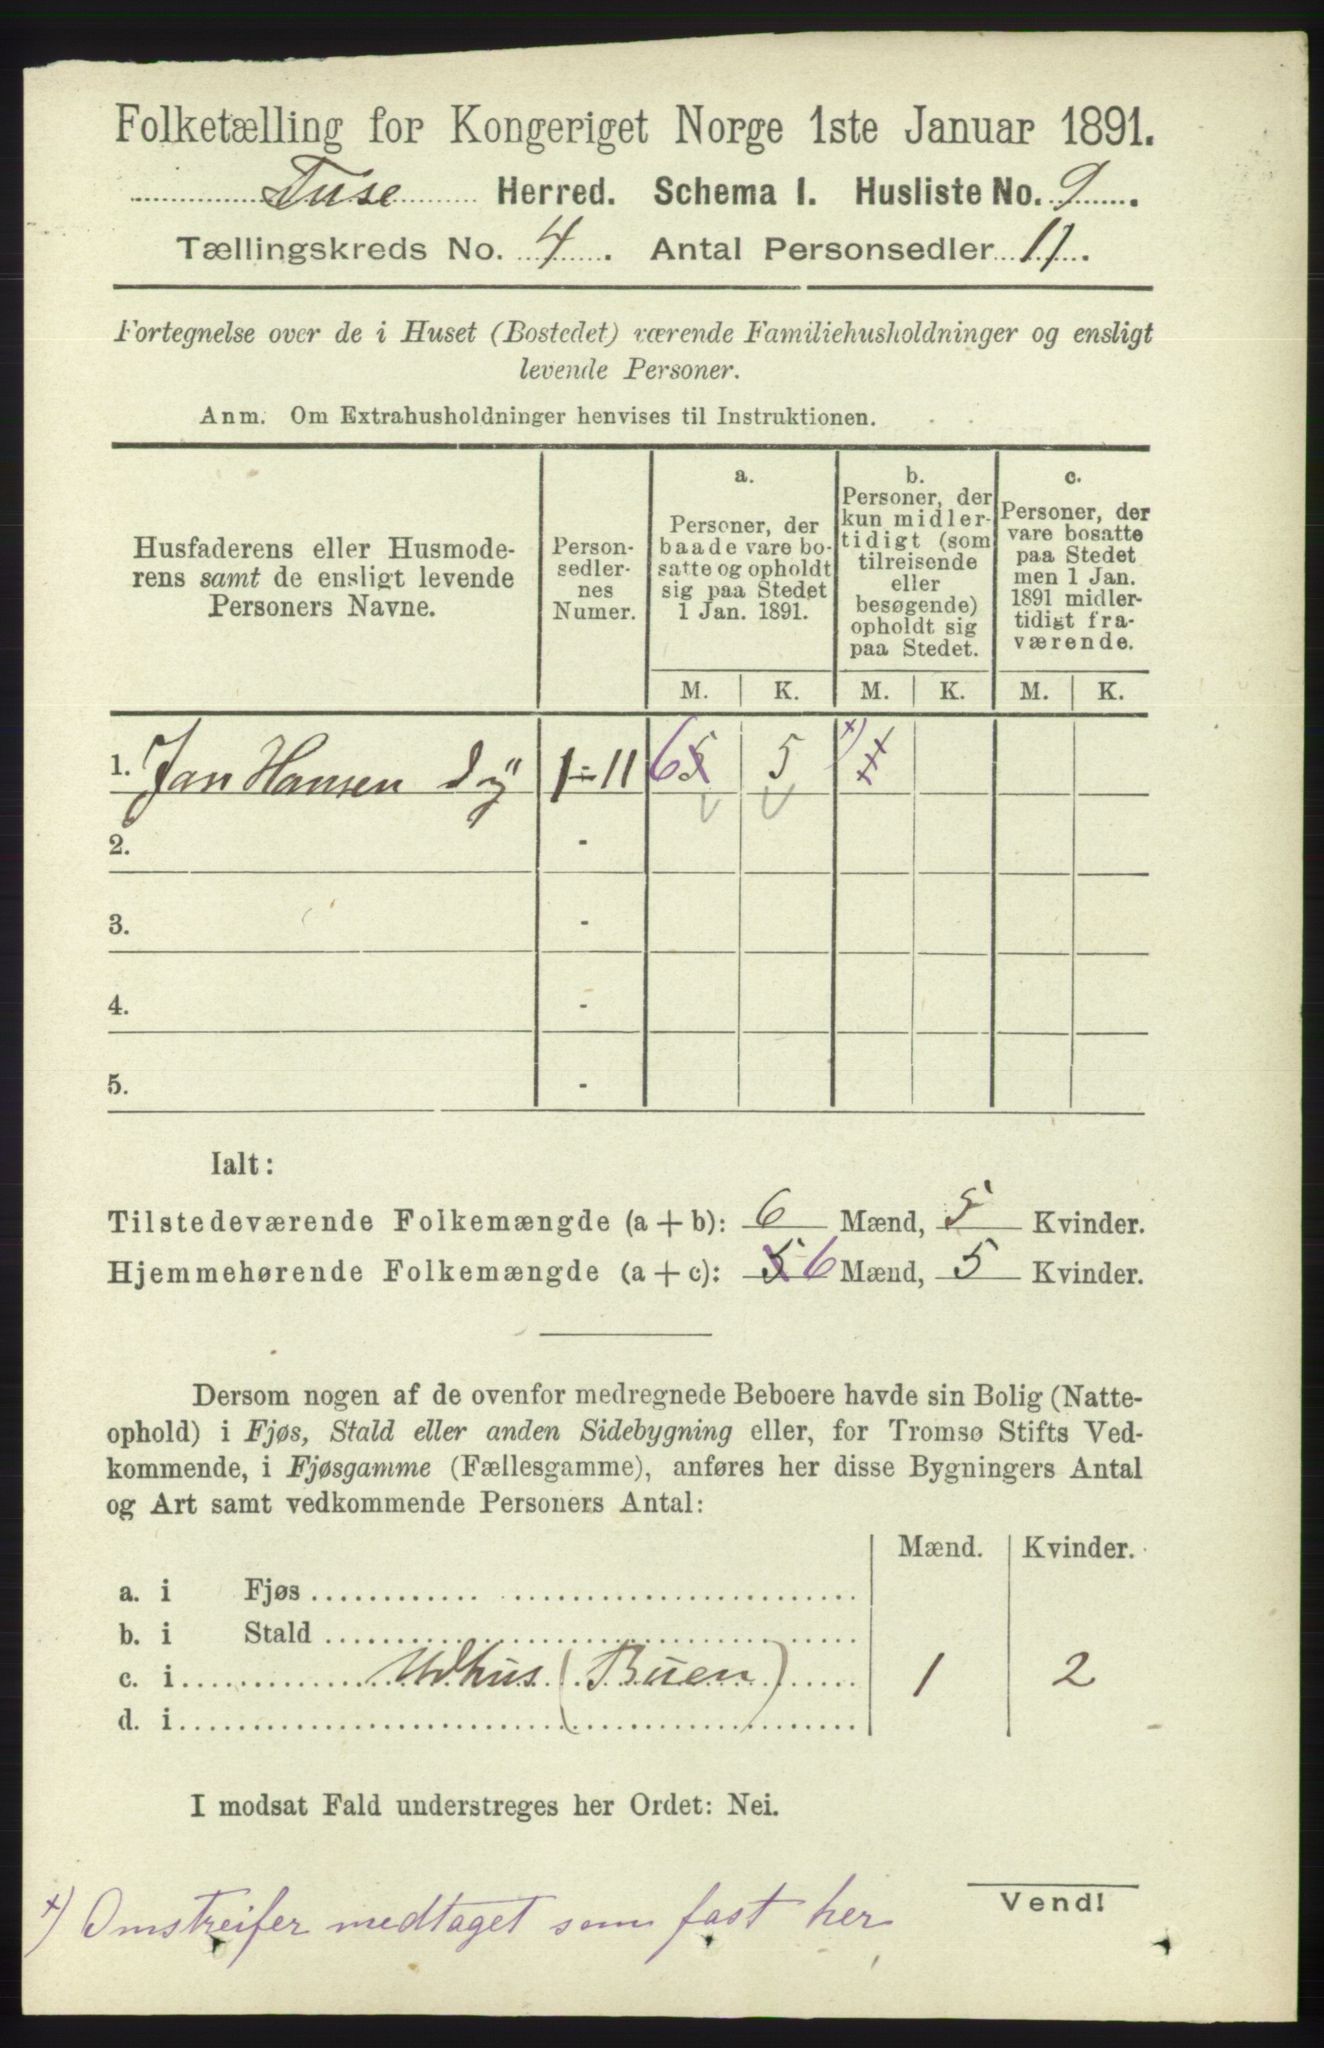 Folketælling for Kongeriget Norge 1ste Januar 1891.
Fuse Herred. Schema I. Husliste No. 9.
Tællingskreds No. 4. Antal Personsedler 11.
Fortegnelse over de i Huset (Bostedet) værende Familiehusholdninger og ensligt
levende Personer.
Anm. Om Extrahusholdninger henvises til Instruktionen.
Husfaderens eller Husmode-
rens samt de ensligt levende
Personers Navne.
Person-
sedler-
nes
Numer.
a.
Personer, der
baade vare bo-
satte og opholdt
sig paa Stedet
1 Jan. 1891.
b.
Personer, der
kun midler-
tidigt (som
tilreisende
eller
besøgende)
opholdt sig
paa Stedet.
c.
Personer, der
vare bosatte
paa Stedet
men 1 Jan.
1891 midler-
tidigt fra-
værende.
M. K. M. K. M. K.
1. Jan Hansen 1-11 6 5 5 x)
2. -
3. -
4. -
5. -
Ialt:
Tilstedeværende Folkemængde (a + b): 6 Mænd, 5 Kvinder.
Hjemmehørende Folkemængde (a + c): 5 6 Mænd, 5 Kvinder.
Dersom nogen af de ovenfor medregnede Beboere havde sin Bolig (Natte-
ophold) i Fjøs, Stald eller anden Sidebygning eller, for Tromsø Stifts Ved-
kommende, i Fjøsgamme (Fællesgamme), anføres her disse Bygningers Antal
og Art samt vedkommende Personers Antal:
Mænd. Kvinder.
a. i Fjøs
b. i Stald
c. i Udhus (Buen) 1 2
d. i
I modsat Fald understreges her Ordet: Nei.
Vend!
x) Omstreifer medtaget som fast her